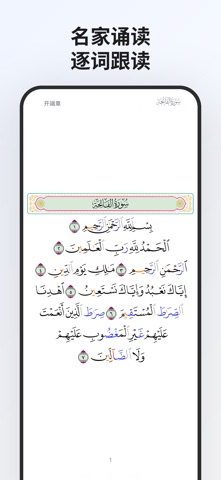 名家诵读
逐词跟读
开端章 سُورَةُ الفَاتِحَةِ
سُورَةُ الفَاتِحَةِ
بِسْمِ ٱللَّهِ ٱلرَّحْمَٰنِ ٱلرَّحِيمِ ١
ٱلْحَمْدُ لِلَّهِ رَبِّ ٱلْعَٰلَمِينَ ٢
ٱلرَّحْمَٰنِ ٱلرَّحِيمِ ٣ مَٰلِكِ يَوْمِ ٱلدِّينِ ٤
إِيَّاكَ نَعْبُدُ وَإِيَّاكَ نَسْتَعِينُ ٥ ٱهْدِنَا
ٱلصِّرَٰطَ ٱلْمُسْتَقِيمَ ٦ صِرَٰطَ ٱلَّذِينَ أَنْعَمْتَ
عَلَيْهِمْ غَيْرِ ٱلْمَغْضُوبِ عَلَيْهِمْ
وَلَا ٱلضَّآلِّينَ ٧
1